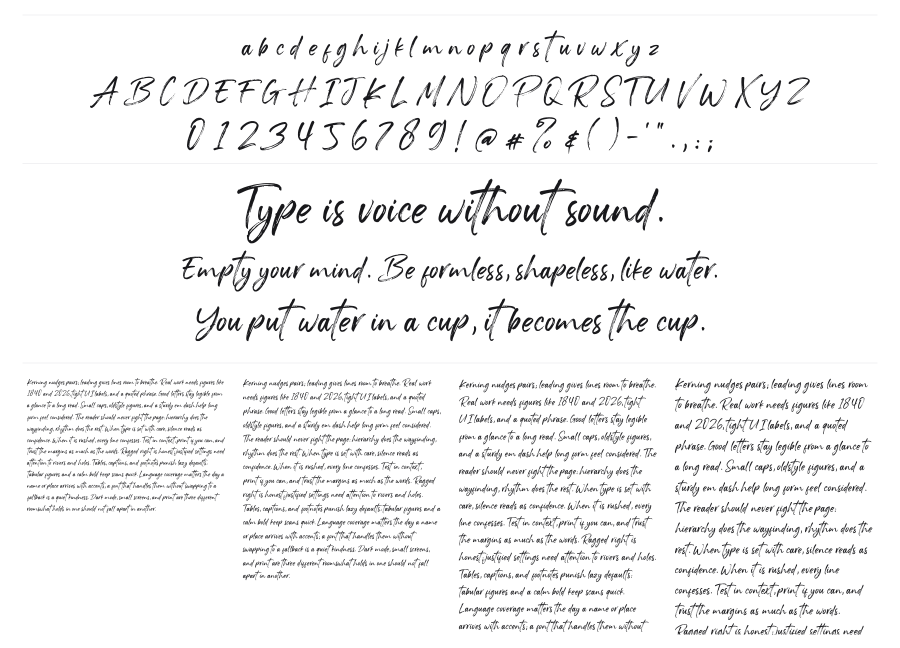 a b c d e f g h i j k l m n o p q r s t u v w x y z
A B C D E F G H I J K L M N O P Q R S T U V W X Y Z
0 1 2 3 4 5 6 7 8 9 ! @ # % & ( ) - ' " . , : ;
Type is voice without sound.
Empty your mind. Be formless, shapeless, like water.
You put water in a cup, it becomes the cup.
Kerning nudges pairs; leading gives lines room to breathe. Real work needs figures like
1840 and 2026, tight UI labels, and a quoted phrase. Good letters stay legible from
a glance to a long read. Small caps, oldstyle figures, and a sturdy em dash help long
form feel considered. The reader should never fight the page: hierarchy does the
wayfinding, rhythm does the rest. When type is set with care, silence reads as
confidence. When it is rushed, every line confesses. Test in context, print if you can, and
trust the margins as much as the words. Ragged right is honest; justified settings need
attention to rivers and holes. Tables, captions, and footnotes punish lazy defaults:
tabular figures and a calm bold keep scans quick. Language coverage matters the day a
name or place arrives with accents; a font that handles them without swapping to a
fallback is a quiet kindness. Dark mode, small screens, and print are three different
rooms: what holds in one should not fall apart in another.
Kerning nudges pairs; leading gives lines room to breathe. Real work
needs figures like 1840 and 2026, tight UI labels, and a quoted
phrase. Good letters stay legible from a glance to a long read. Small caps,
oldstyle figures, and a sturdy em dash help long form feel considered.
The reader should never fight the page: hierarchy does the wayfinding,
rhythm does the rest. When type is set with care, silence reads as
confidence. When it is rushed, every line confesses. Test in context,
print if you can, and trust the margins as much as the words. Ragged
right is honest; justified settings need attention to rivers and holes.
Tables, captions, and footnotes punish lazy defaults: tabular figures and a
calm bold keep scans quick. Language coverage matters the day a name
or place arrives with accents; a font that handles them without
swapping to a fallback is a quiet kindness. Dark mode, small screens,
and print are three different rooms: what holds in one should not fall
apart in another.
Kerning nudges pairs; leading gives lines room to breathe.
Real work needs figures like 1840 and 2026, tight
UI labels, and a quoted phrase. Good letters stay legible
from a glance to a long read. Small caps, oldstyle figures,
and a sturdy em dash help long form feel considered. The
reader should never fight the page: hierarchy does the
wayfinding, rhythm does the rest. When type is set with
care, silence reads as confidence. When it is rushed, every
line confesses. Test in context, print if you can, and trust
the margins as much as the words. Ragged right is
honest; justified settings need attention to rivers and holes.
Tables, captions, and footnotes punish lazy defaults:
tabular figures and a calm bold keep scans quick.
Language coverage matters the day a name or place
arrives with accents; a font that handles them without
Kerning nudges pairs; leading gives lines room
to breathe. Real work needs figures like 1840
and 2026, tight UI labels, and a quoted
phrase. Good letters stay legible from a glance to
a long read. Small caps, oldstyle figures, and a
sturdy em dash help long form feel considered.
The reader should never fight the page:
hierarchy does the wayfinding, rhythm does the
rest. When type is set with care, silence reads as
confidence. When it is rushed, every line
confesses. Test in context, print if you can, and
trust the margins as much as the words.
Ragged right is honest; justified settings need